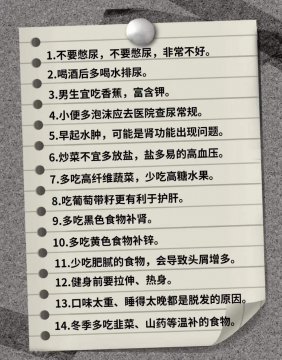 1.不要憋尿，不要憋尿，非常不好。
2.喝酒后多喝水排尿。
3.男生宜吃香蕉，富含钾。
4.小便多泡沫应去医院查尿常规。
5.早起水肿，可能是肾功能出现问题。
6.炒菜不宜多放盐，盐多易的高血压。
7.多吃高纤维蔬菜，少吃高糖水果。
8.吃葡萄带籽更有利于护肝。
9.多吃黑色食物补肾。
10.多吃黄色食物补锌。
11.少吃肥腻的食物，会导致头屑增多。
12.健身前要拉伸、热身。
13.口味太重、睡得太晚都是脱发的原因。
14.冬季多吃韭菜、山药等温补的食物。